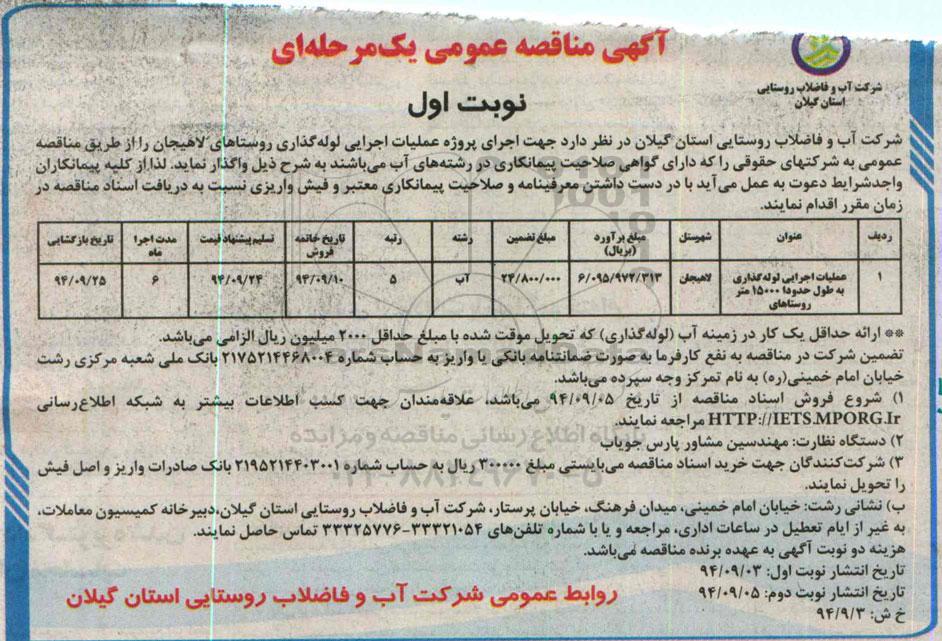 آگهی مناقصه عمومی یک‌مرحله‌ای
شرکت آب و فاضلاب روستایی
استان گیلان
نوبت اول
شرکت آب و فاضلاب روستایی استان گیلان در نظر دارد جهت اجرای پروژه عملیات اجرایی لوله‌گذاری روستاهای لاهیجان را از طریق مناقصه
عمومی به شرکتهای حقوقی را که دارای گواهی صلاحیت پیمانکاری در رشته‌های آب می‌باشند به شرح ذیل واگذار نماید. لذا از کلیه پیمانکاران
واجدشرایط دعوت به عمل می‌آید با در دست داشتن معرفینامه و صلاحیت پیمانکاری معتبر و فیش واریزی نسبت به دریافت اسناد مناقصه در
زمان مقرر اقدام نمایند.
ردیف عنوان شهرستان مبلغ برآورد (بریال) مبلغ تضمین رشته رتبه تاریخ خاتمه فروش تسلیم پیشنهاد قیمت مدت اجرا ماه تاریخ بازگشایی
۱ عملیات اجرایی لوله‌گذاری به طول حدودا ۱۵۰۰۰ متر روستاهای لاهیجان ۶/۰۹۵/۹۷۲/۳۱۳ ۲۴/۸۰۰/۰۰۰ آب ۵ ۹۴/۰۹/۱۰ ۹۴/۰۹/۲۴ ۶ ۹۴/۰۹/۲۵
** ارائه حداقل یک کار در زمینه آب (لوله‌گذاری) که تحویل موقت شده با مبلغ حداقل ۲۰۰۰ میلیون ریال الزامی می‌باشد.
تضمین شرکت در مناقصه به نفع کارفرما به صورت ضمانتنامه بانکی یا واریز به حساب شماره ۲۱۷۵۲۱۴۴۶۸۰۰۴ بانک ملی شعبه مرکزی رشت
خیابان امام خمینی(ره) به نام تمرکز وجه سپرده می‌باشد.
۱) شروع فروش اسناد مناقصه از تاریخ ۹۴/۰۹/۰۵ می‌باشد، علاقه‌مندان جهت کسب اطلاعات بیشتر به شبکه اطلاع‌رسانی
HTTP://IETS.MPORG.Ir مراجعه نمایند.
پایگاه اطلاع رسانی مناقصه و مزایده
۲) دستگاه نظارت: مهندسین مشاور پارس جویاب
۳) شرکت‌کنندگان جهت خرید اسناد مناقصه می‌بایستی مبلغ ۳۰۰۰۰۰ ریال به حساب شماره ۲۱۹۵۲۱۴۴۰۳۰۰۱ بانک صادرات واریز و اصل فیش
را تحویل نمایند.
۰۲۱-۸۸۳۴۹۶۷۰-۵
ب) نشانی رشت: خیابان امام خمینی، میدان فرهنگ، خیابان پرستار، شرکت آب و فاضلاب روستایی استان گیلان،دبیرخانه کمیسیون معاملات،
به غیر از ایام تعطیل در ساعات اداری، مراجعه و یا با شماره تلفن‌های ۳۳۳۲۱۰۵۴-۳۳۳۲۵۷۷۶ تماس حاصل نمایند.
هزینه دو نوبت آگهی به عهده برنده مناقصه می‌باشد.
تاریخ انتشار نوبت اول: ۹۴/۰۹/۰۳
تاریخ انتشار نوبت دوم: ۹۴/۰۹/۰۵
خ ش: ۹۴/۹/۳
روابط عمومی شرکت آب و فاضلاب روستایی استان گیلان